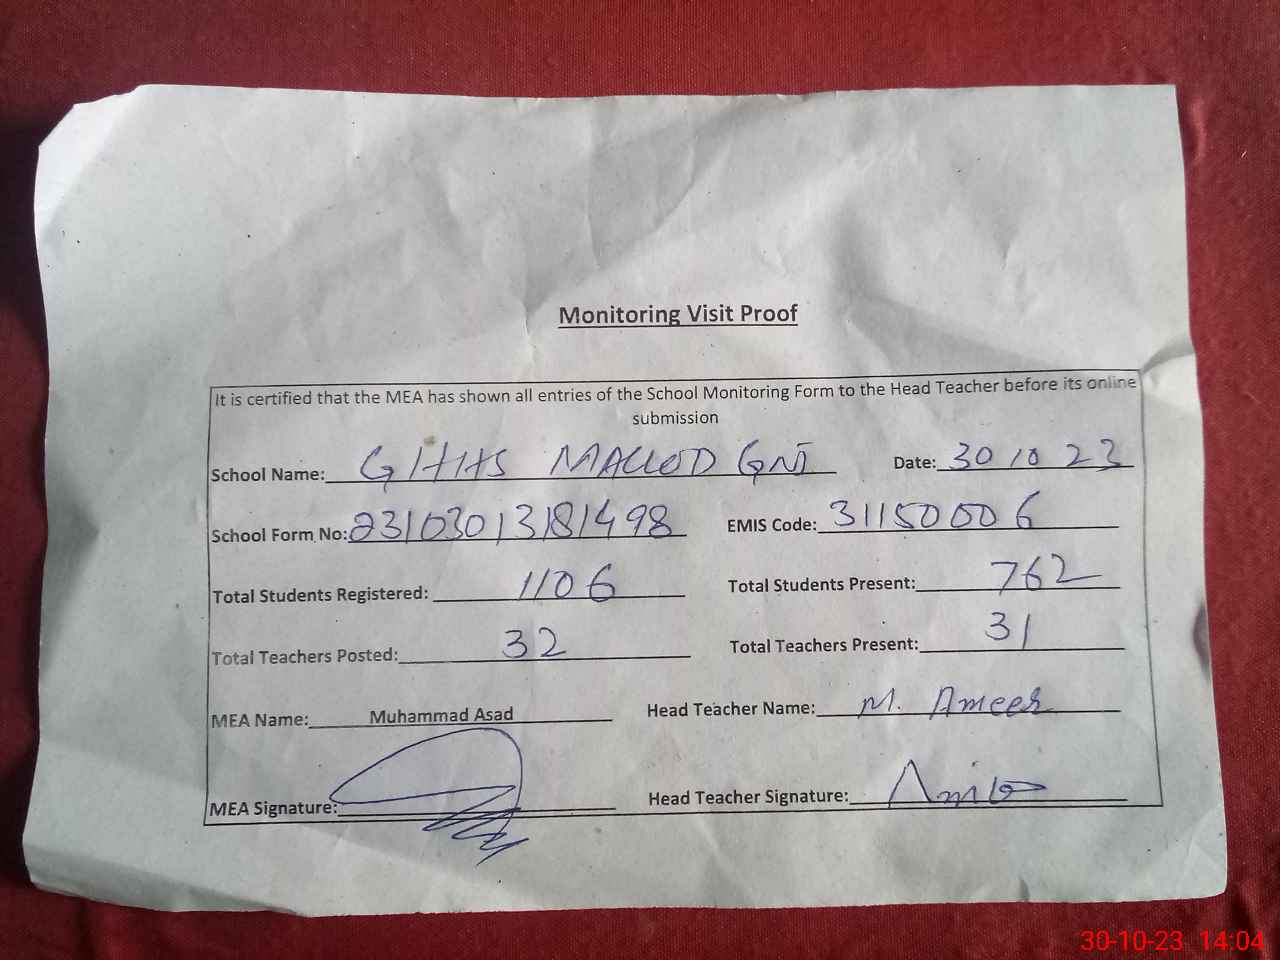 Monitoring Visit Proof
It is certified that the MEA has shown all entries of the School Monitoring Form to the Head Teacher before its online
submission
School Name: GHHS MACLOD GNJ Date: 30 10 23
School Form No: 23103013181498 EMIS Code: 31150006
Total Students Registered: 1106 Total Students Present: 762
Total Teachers Posted: 32 Total Teachers Present: 31
MEA Name: Muhammad Asad Head Teacher Name: M. Ameer
MEA Signature: Head Teacher Signature:
30-10-23 14:04